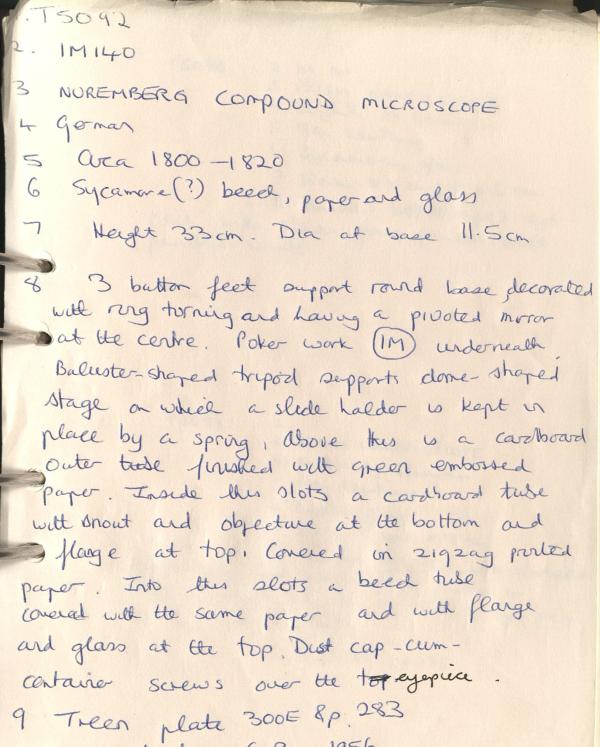 .T5092
2. IM140
3 NUREMBERG COMPOUND MICROSCOPE
4 German
5 Circa 1800-1820
6 Sycamore(?) beech, paper and glass
7 Height 33cm. Dia at base 11.5cm
8 3 button feet support round base, decorated
with ring turning and having a pivoted mirror
at the centre. Poker work IM underneath.
Baluster-shaped tripod supports dome-shaped
stage on which a slide holder is kept in
place by a spring, above this is a cardboard
outer tube finished with green embossed
paper. Inside this slots a cardboard tube
with snout and objective at the bottom and
flange at top. Covered in zigzag printed
paper. Into this slots a beech tube
covered with the same paper and with flange
and glass at the top. Dust cap-cum-
container screws over the top eyepiece.
9 Treen plate 300E & p. 283
1956